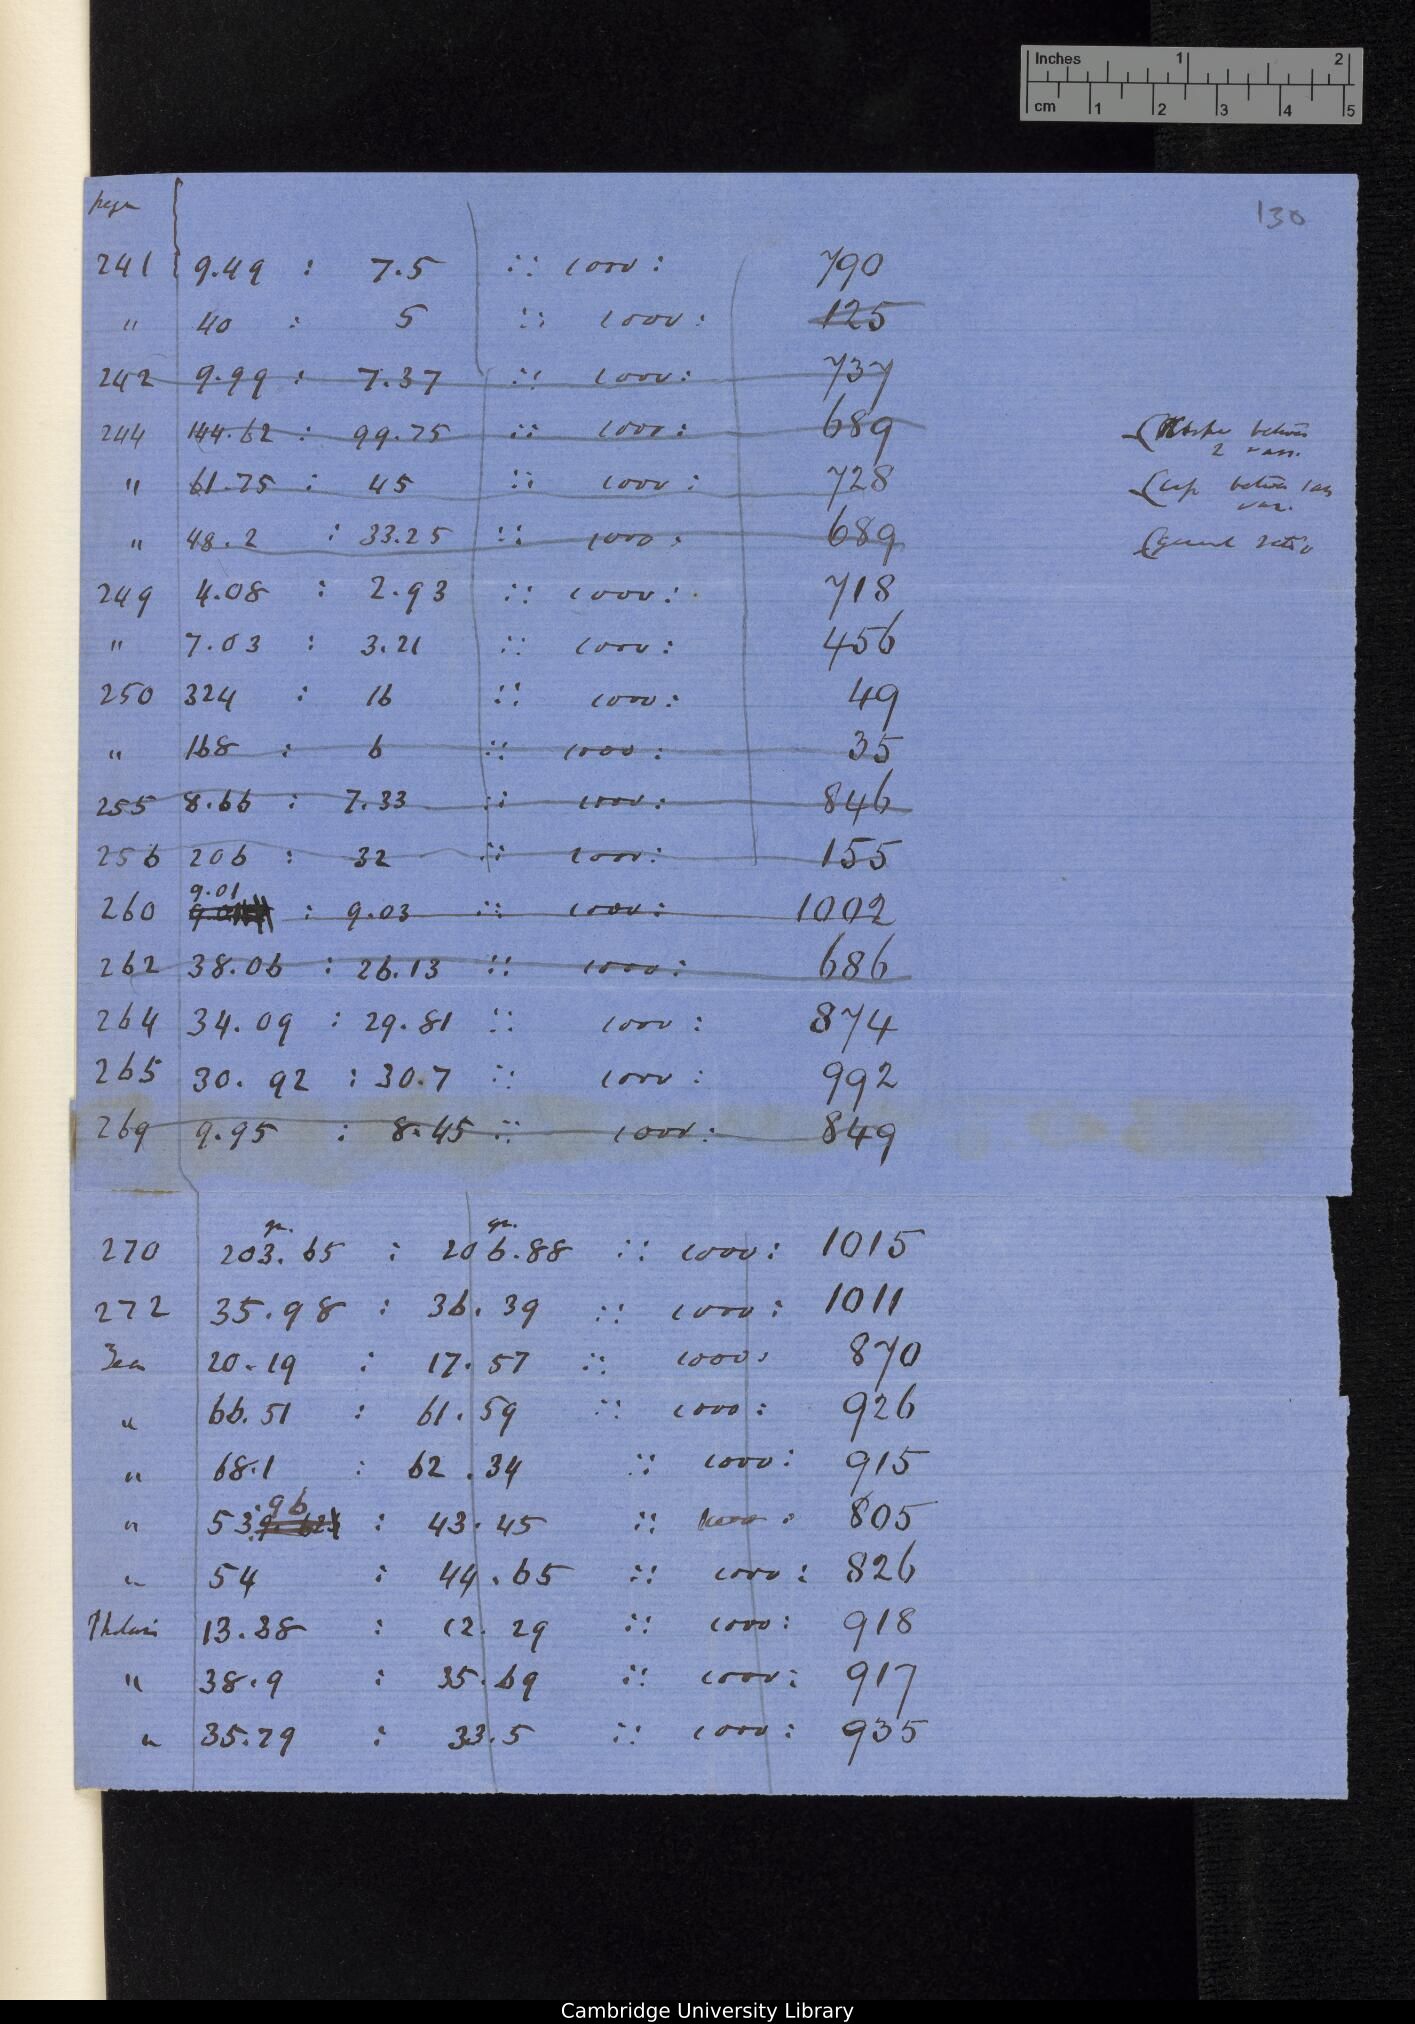 Inches 1 2
cm 1 2 3 4 5
page
130
241 9.49 : 7.5 :: 1000 : 790
" 40 : 5 :: 1000 : 125
242 9.99 : 7.37 :: 1000 : 737
244 144.62 : 99.75 :: 1000 : 689
" 61.75 : 45 :: 1000 : 728
" 48.2 : 33.25 :: 1000 : 689
249 4.08 : 2.93 :: 1000 : 718
" 7.03 : 3.21 :: 1000 : 456
250 324 : 16 :: 1000 : 49
" 168 : 6 :: 1000 : 35
255 8.66 : 7.33 :: 1000 : 846
256 206 : 32 :: 1000 : 155
260 9.01 : 9.03 :: 1000 : 1002
262 38.06 : 26.13 :: 1000 : 686
264 34.09 : 29.81 :: 1000 : 874
265 30.92 : 30.7 :: 1000 : 992
269 9.95 : 8.45 :: 1000 : 849
between
2 vars.
between
var.
ratio
gr. gr.
270 203.65 : 206.88 :: 1000 : 1015
272 35.98 : 36.39 :: 1000 : 1011
Zea 20.19 : 17.57 :: 1000 : 870
" 66.51 : 61.59 :: 1000 : 926
" 68.1 : 62.34 :: 1000 : 915
" 53.96 : 43.45 :: 1000 : 805
" 54 : 44.65 :: 1000 : 826
Phalaris 13.38 : 12.29 :: 1000 : 918
" 38.9 : 35.69 :: 1000 : 917
" 35.79 : 33.5 :: 1000 : 935
Cambridge University Library